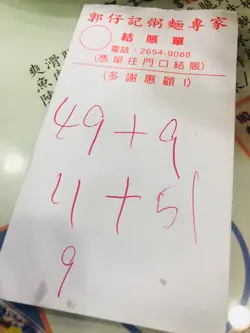 郭仔記粥麵專家
結賬單
電話：2654-9088
(憑單往門口結賬)
(多謝惠顧！)
49+9
11+51
9
爽滑